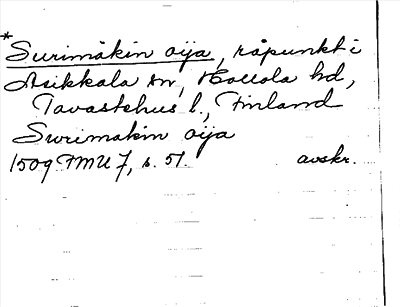 *
Surimäkin oija, råpunkt i
Asikkala sn, Hollola hd,
Tavastehus l., Finland
Swrimakin oija
1509 FMU 7, s. 51. avskr.